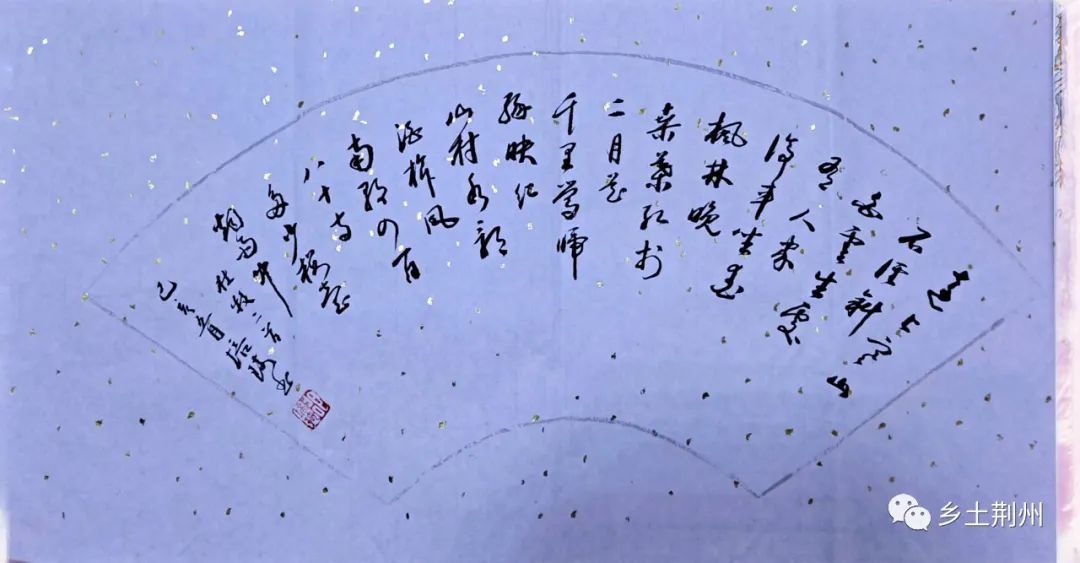 遠上寒山
石径斜
白雲生處
有人家
停車坐愛
枫林晚
霜葉红於
二月花
千里莺啼
绿映红
山村水郭
酒旗风
南朝四百
八十寺
多少楼台
烟雨中
杜牧二首
己亥五月培
乡土荆州